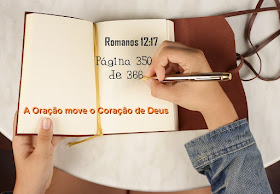 Romanos 12:17
Página 350
de 366
A Oração move o Coração de Deus